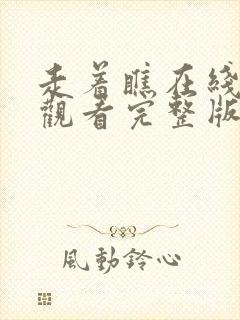 走着瞧在綫
觀看完整版
風動鈴心